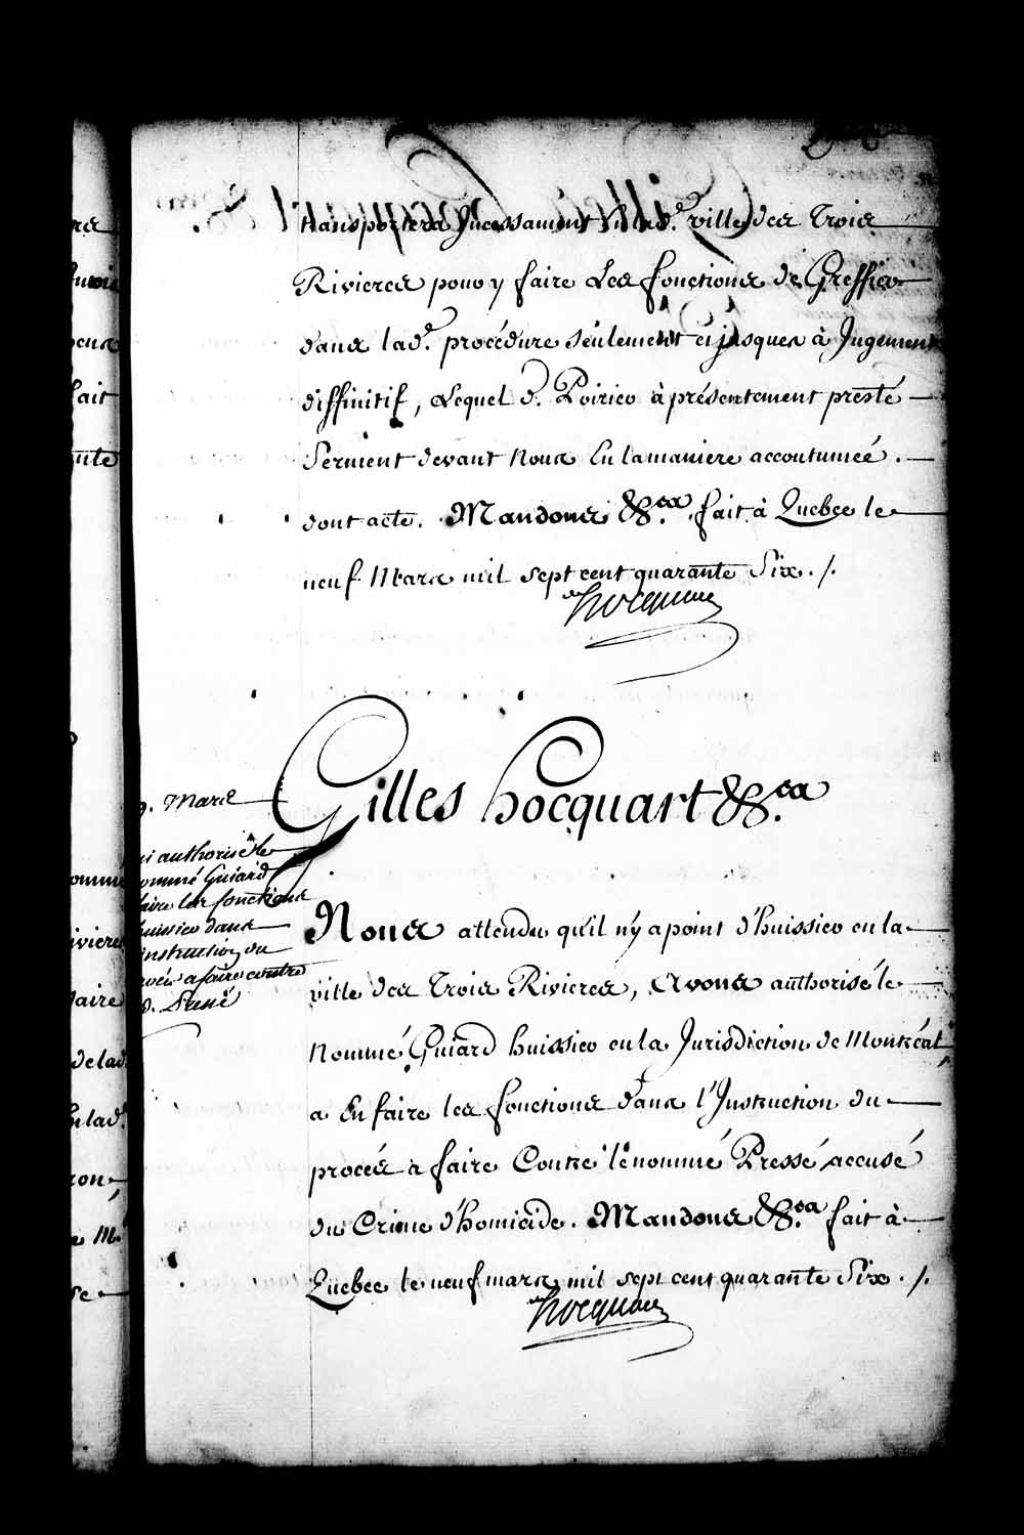 transportera Incessament En lad.e ville des Trois
Rivieres pour y faire Les fonctions de Greffier
dans lad.e procédure séulement et jusques à Jugement
diffinitif, Lequel d. Poirier à présentement presté
Serment devant Nous En la maniere accoutumée.
dont acte. Mandons &c.a fait à Québec le
neuf Mars mil sept cent quarante Six ./.
hocquart
Gilles hocquart &c.a
9. Mars
qui authorise le
nommé Guiard
faire les fonctions
huissier dans
instruction du
procès a faire contre
d. Pressé
Nous attendu qu'il n'y a point d'huissier en la
ville des Trois Rivieres, Avons authorisé le
Nommé Guiard huissier en la Jurisdiction de Montréal,
a En faire les fonctions dans l'Instruction du
procès à faire Contre le nommé Pressé accusé
du Crime d'homicide. Mandons &c.a fait à
Québec le neuf mars mil sept cent quarante Six ./.
hocquart